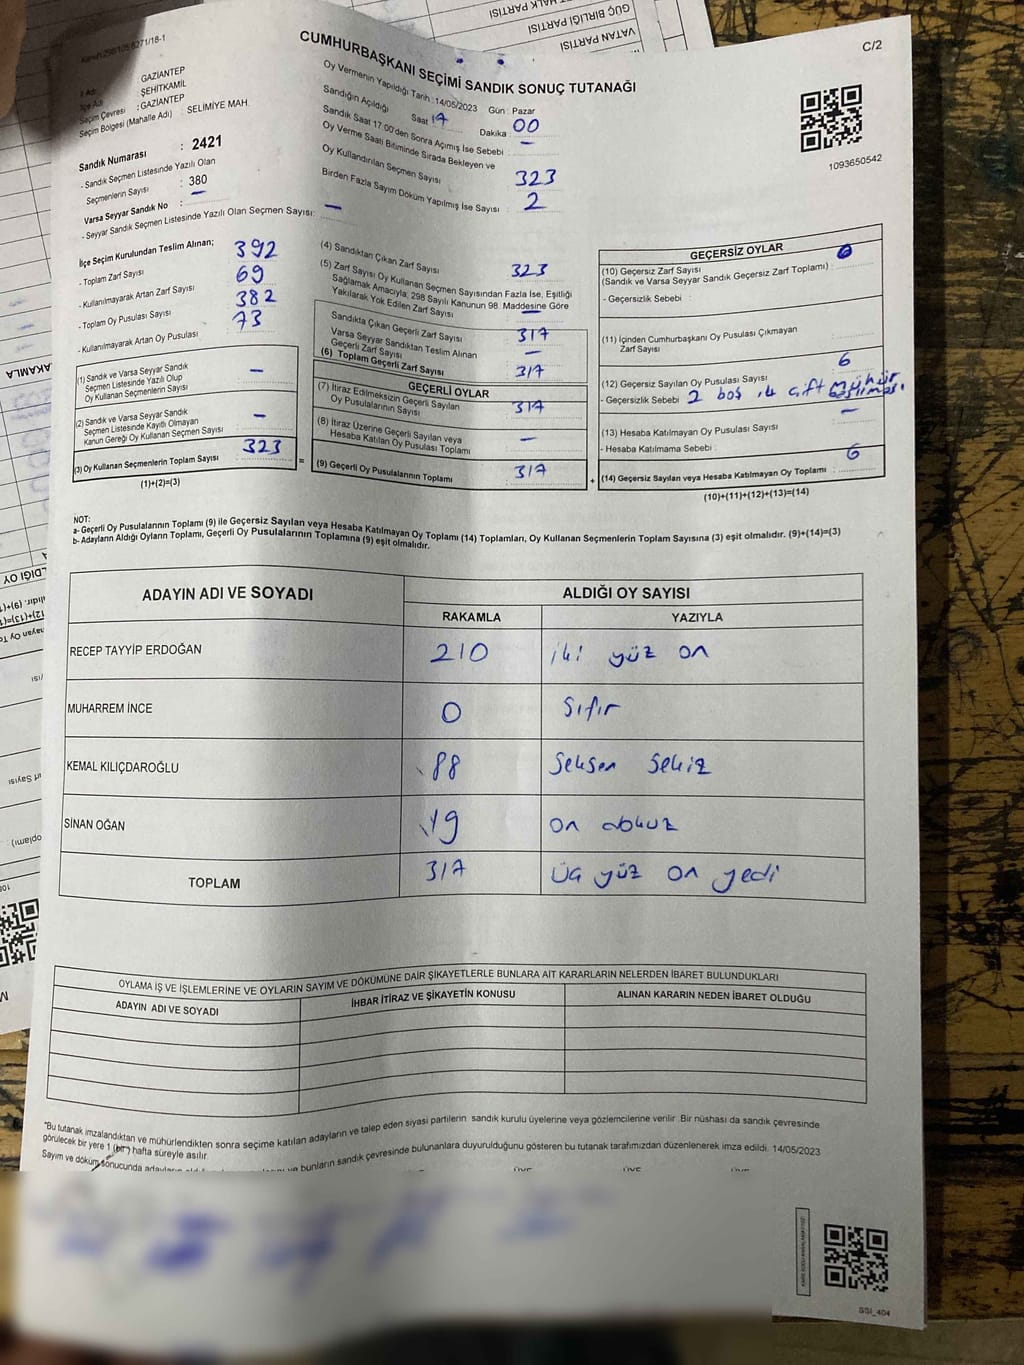 HALK PARTİSİ
GÜÇ BİRLİĞİ PARTİSİ
VATAN PARTİSİ
C/2
CUMHURBAŞKANI SEÇİMİ SANDIK SONUÇ TUTANAĞI
İl Adı : GAZİANTEP
İlçe Adı : ŞEHİTKAMİL
Seçim Çevresi : GAZİANTEP
Seçim Bölgesi (Mahalle Adı) : SELİMİYE MAH.
Sandık Numarası : 2421
- Sandık Seçmen Listesinde Yazılı Olan
Seçmenlerin Sayısı : 380
Varsa Seyyar Sandık No : -
- Seyyar Sandık Seçmen Listesinde Yazılı Olan Seçmen Sayısı: -
Oy Vermenin Yapıldığı Tarih : 14/05/2023 Gün : Pazar
Sandığın Açıldığı Saat 17 Dakika 00
Sandık Saat 17:00'den Sonra Açımış İse Sebebi -
Oy Verme Saati Bitiminde Sırada Bekleyen ve
Oy Kullandırılan Seçmen Sayısı 323
Birden Fazla Sayım Döküm Yapılmış İse Sayısı 2
1093650542
İlçe Seçim Kurulundan Teslim Alınan;
- Toplam Zarf Sayısı 392
- Kullanılmayarak Artan Zarf Sayısı 69
- Toplam Oy Pusulası Sayısı 382
- Kullanılmayarak Artan Oy Pusulası 73
(1) Sandık ve Varsa Seyyar Sandık
Seçmen Listesinde Yazılı Olup
Oy Kullanan Seçmenlerin Sayısı -
(2) Sandık ve Varsa Seyyar Sandık
Seçmen Listesinde Kayıtlı Olmayan
Kanun Gereği Oy Kullanan Seçmen Sayısı -
(3) Oy Kullanan Seçmenlerin Toplam Sayısı 323 =
(1)+(2)=(3)
(4) Sandıktan Çıkan Zarf Sayısı 323
(5) Zarf Sayısı Oy Kullanan Seçmen Sayısından Fazla İse, Eşitliği
Sağlamak Amacıyla, 298 Sayılı Kanunun 98. Maddesine Göre
Yakılarak Yok Edilen Zarf Sayısı -
Sandıkta Çıkan Geçerli Zarf Sayısı 317
Varsa Seyyar Sandıktan Teslim Alınan
Geçerli Zarf Sayısı -
(6) Toplam Geçerli Zarf Sayısı 317
GEÇERLİ OYLAR
(7) İtiraz Edilmeksizin Geçerli Sayılan
Oy Pusulalarının Sayısı 317
(8) İtiraz Üzerine Geçerli Sayılan veya
Hesaba Katılan Oy Pusulası Toplamı -
(9) Geçerli Oy Pusulalarının Toplamı 317 +
GEÇERSİZ OYLAR
(10) Geçersiz Zarf Sayısı 6
(Sandık ve Varsa Seyyar Sandık Geçersiz Zarf Toplamı)
- Geçersizlik Sebebi :
(11) İçinden Cumhurbaşkanı Oy Pusulası Çıkmayan
Zarf Sayısı
(12) Geçersiz Sayılan Oy Pusulası Sayısı 6
- Geçersizlik Sebebi 2 boş 4 çift mühür
(13) Hesaba Katılmayan Oy Pusulası Sayısı -
- Hesaba Katılmama Sebebi
(14) Geçersiz Sayılan veya Hesaba Katılmayan Oy Toplamı 6
(10)+(11)+(12)+(13)=(14)
NOT:
a- Geçerli Oy Pusulalarının Toplamı (9) ile Geçersiz Sayılan veya Hesaba Katılmayan Oy Toplamı (14) Toplamları, Oy Kullanan Seçmenlerin Toplam Sayısına (3) eşit olmalıdır. (9)+(14)=(3)
b- Adayların Aldığı Oyların Toplamı, Geçerli Oy Pusulalarının Toplamına (9) eşit olmalıdır.
ADAYIN ADI VE SOYADI ALDIĞI OY SAYISI
RAKAMLA YAZIYLA
RECEP TAYYİP ERDOĞAN 210 iki yüz on
MUHARREM İNCE 0 Sıfır
KEMAL KILIÇDAROĞLU 88 Seksen Sekiz
SİNAN OĞAN 19 on dokuz
TOPLAM 317 üç yüz on yedi
OYLAMA İŞ VE İŞLEMLERİNE VE OYLARIN SAYIM VE DÖKÜMÜNE DAİR ŞİKAYETLERLE BUNLARA AİT KARARLARIN NELERDEN İBARET BULUNDUKLARI
ADAYIN ADI VE SOYADI İHBAR İTİRAZ VE ŞİKAYETİN KONUSU ALINAN KARARIN NEDEN İBARET OLDUĞU
*Bu tutanak imzalandıktan ve mühürlendikten sonra seçime katılan adayların ve talep eden siyasi partilerin sandık kurulu üyelerine veya gözlemcilerine verilir. Bir nüshası da sandık çevresinde
görülecek bir yere 1 (bir) hafta süreyle asılır.
Sayım ve döküm sonucunda ve bunların sandık çevresinde bulunanlara duyurulduğunu gösteren bu tutanak tarafımızdan düzenlenerek imza edildi. 14/05/2023
ÜYE ÜYE ÜYE
SSI_404